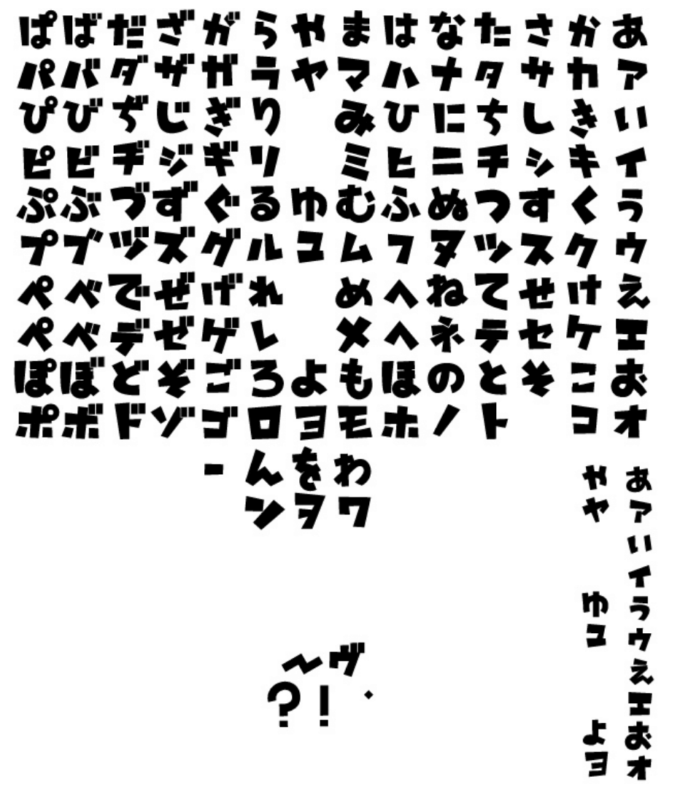 あアいイうウえエおオ
かカきキくクけケこコ
さサしシすスせセそ
たタちチつツてテとト
なナにニぬヌねネのノ
はハひヒふフへヘほホ
まマみミむムめメもモ
やヤゆユよヨ
らラりリるルれレろロ
がガぎギぐグげゲごゴ
ざザじジずズぜゼぞゾ
だダぢヂづヅでデどド
ばバびビぶブべベぼボ
ぱパぴピぷプぺペぽポ
わワ
をヲ
んン
ー
ぁァぃィぅゥぇェぉォ
ゃャゅュょョ
〜ヴ
？！・